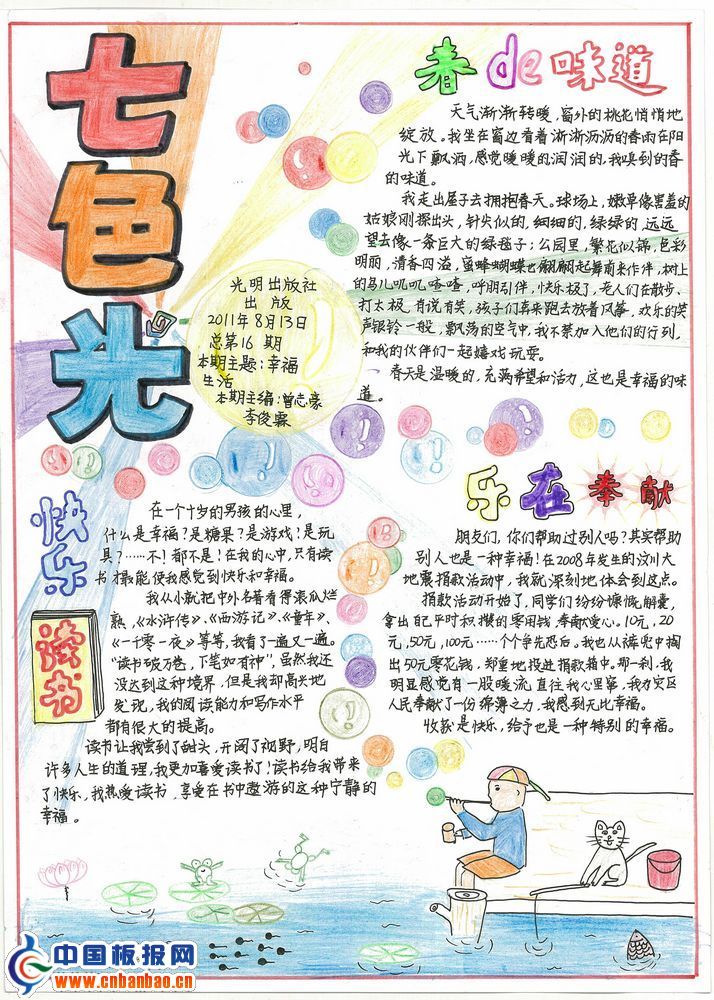 七色光
光明出版社
出版
2011年8月13日
总第16期
本期主题:幸福
生活
本期主编:曾志豪
李俊霖
春de味道
天气渐渐转暖,窗外的桃花悄悄地
绽放。我坐在窗边看着淅淅沥沥的春雨在阳
光下飘洒,感觉暖暖的润润的,我嗅到的春
的味道。
我走出屋子去拥抱春天。球场上,嫩草像害羞的
姑娘刚探出头,针尖似的,细细的,绿绿的,远远
望去像一条巨大的绿毯子;公园里,繁花似锦,色彩
明丽,清香四溢,蜜蜂蝴蝶也翩翩起舞前来作伴,树上
的鸟儿叽叽喳喳,呼朋引伴,快乐极了,老人们在散步、
打太极,有说有笑,孩子们喜来跑去放着风筝,欢乐的笑
声银铃一般,飘荡的空气中,我不禁加入他们的行列,
和我的伙伴们一起嬉戏玩耍。
春天是温暖的,充满希望和活力,这也是幸福的味
道。
快乐读书
在一个十岁的男孩的心里,
什么是幸福?是糖果?是游戏!是玩
具?……不!都不是!在我的心中,只有读
书才最能使我感觉到快乐和幸福。
我从小就把中外名著看得滚瓜烂
熟,《水浒传》、《西游记》、《童年》、
《一千零一夜》等等,我看了一遍又一遍。
“读书破万卷,下笔如有神”,虽然我还
没达到这种境界,但是我却高兴地
发现,我的阅读能力和写作水平
都有很大的提高。
读书让我尝到了甜头,开阔了视野,明白
许多人生的道理,我更加喜爱读书了!读书给我带来
了快乐,我热爱读书,享受在书中遨游的这种宁静的
幸福。
乐在奉献
朋友们,你们帮助过别人吗?其实帮助
别人也是一种幸福!在2008年发生的汶川大
地震捐款活动中,我就深刻地体会到这点。
捐款活动开始了,同学们纷纷慷慨解囊,
拿出自己平时积攒的零用钱,奉献爱心。10元,20
元,50元,100元……个个争先恐后。我也从裤兜中掏
出50元零花钱,郑重地投进捐款箱中。那一刹,我
明显感觉有一股暖流直往我心里窜,我为灾区
人民奉献了一份绵薄之力,我感到无比幸福。
收获是快乐,给予也是一种特别的幸福。
中国板报网
www.cnbanbao.cn